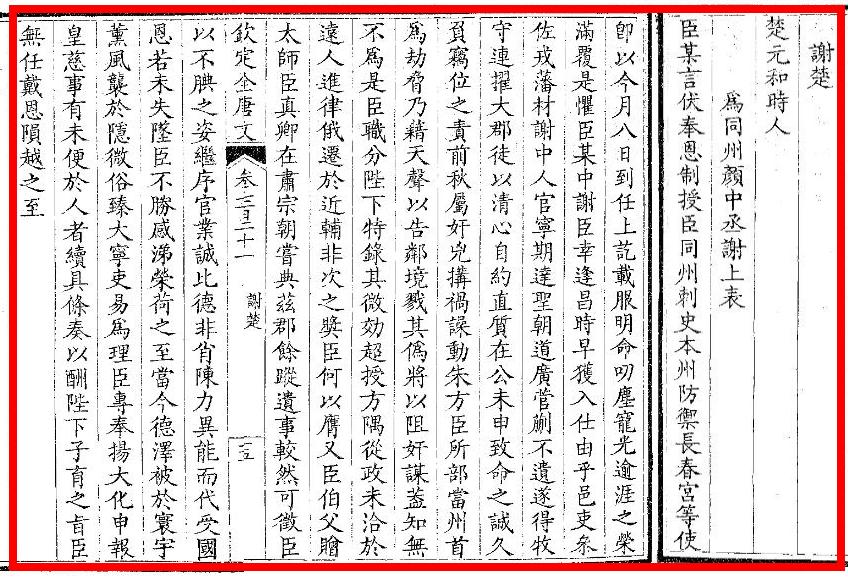 謝楚
楚元和時人
爲同州顏中丞謝上表
臣某言伏奉恩制授臣同州刺史本州防禦長春宮等使
卽以今月八日到任上訖載服明命叨塵寵光逾涯之榮
滿覆是懼臣某中謝臣幸逢昌時早獲入仕由乎邑吏叅
佐戎藩材謝中人官寧期達聖朝道廣菅蒯不遺遂得牧
守連擢大郡徒以清心自約直質在公未申致命之誠久
負竊位之責前秋屬奸兇搆禍譟動朱方臣所部當州首
爲劫脅乃藉天聲以告鄰境戮其僞將以阻奸謀葢知無
不爲是臣職分陛下特錄其微効超授方隅從政未洽於
遠人進律俄遷於近輔非次之奬臣何以膺又臣伯父贈
太師臣真卿在肅宗朝嘗典茲郡餘蹤遺事較然可徵臣
欽定全唐文 卷七百二十一 謝楚 十五
以不腆之姿繼序官業誠比德非省陳力異能而代受國
恩若未失墜臣不勝感涕榮荷之至當今德澤被於寰宇
薰風襲於隱微俗臻大寧吏易爲理臣專奉揚大化申報
皇慈事有未便於人者續具條奏以酬陛下子育之㫖臣
無任戴恩隕越之至